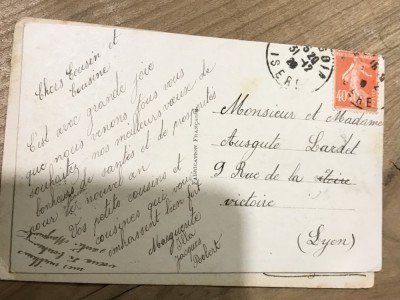 Chers Cousin et
Cousine
C'est avec grande joie
que nous venons tous vous
souhaitez nos meilleurs vœux de
bonheurs de santés et de prospérités
pour le nouvel an
Vos petits cousins et
cousines que vous
embrassent bien fort
Marguerite
Jacques
Robert
Fabrication Française
ISERE
40c
Monsieur et Madame
Auguste Lardet
9 Rue de la
victoire
(Lyon)